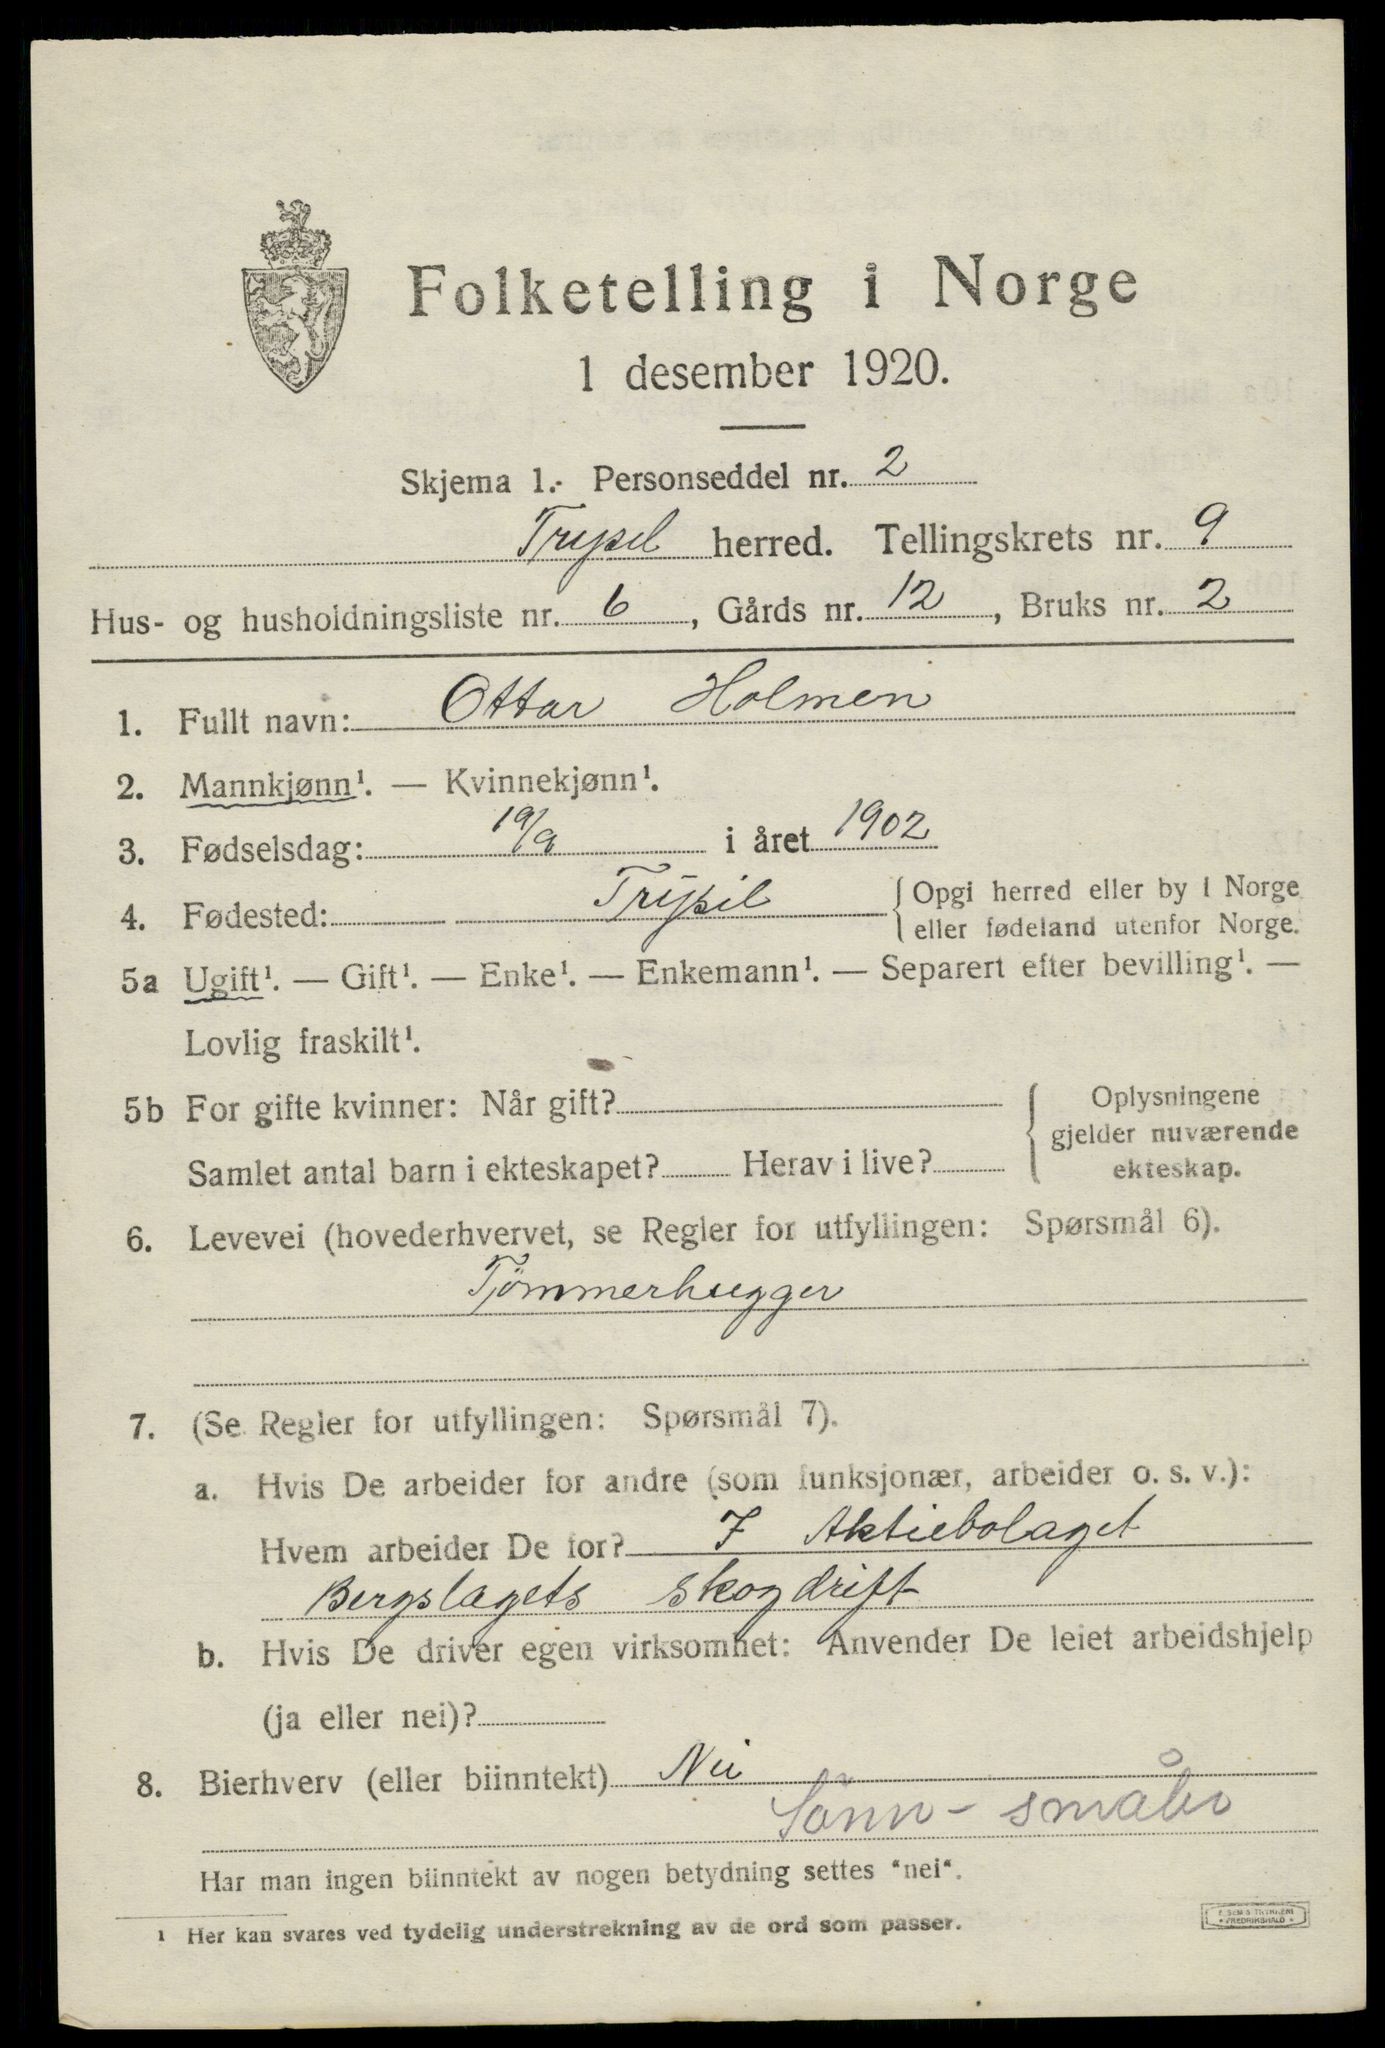 Folketelling i Norge
1 desember 1920.
Skjema 1. Personseddel nr. 2
Trysil herred. Tellingskrets nr. 9
Hus- og husholdningsliste nr. 6, Gårds nr. 12, Bruks nr. 2
1. Fullt navn: Ottar Holmen
2. Mannkjønn¹. — Kvinnekjønn¹.
3. Fødselsdag: 19/9 i året 1902
4. Fødested: Trysil { Opgi herred eller by i Norge
eller fødeland utenfor Norge.
5a Ugift¹. — Gift¹. — Enke¹. — Enkemann¹. — Separert efter bevilling¹. —
Lovlig fraskilt¹.
5b For gifte kvinner: Når gift? { Oplysningene
gjelder nuværende
Samlet antal barn i ekteskapet? Herav i live? ekteskap.
6. Levevei (hovederhvervet, se Regler for utfyllingen: Spørsmål 6).
Tjømmerhugger
7. (Se Regler for utfyllingen: Spørsmål 7).
a. Hvis De arbeider for andre (som funksjonær, arbeider o. s. v.):
Hvem arbeider De for? I Aktiebolaget
Bergslagets skogdrift
b. Hvis De driver egen virksomhet: Anvender De leiet arbeidshjelp
(ja eller nei)?
8. Bierhverv (eller biinntekt) Nei
Sønn - småbr
Har man ingen biinntekt av nogen betydning settes "nei".
1 Her kan svares ved tydelig understrekning av de ord som passer.
FREDRIKSHALD